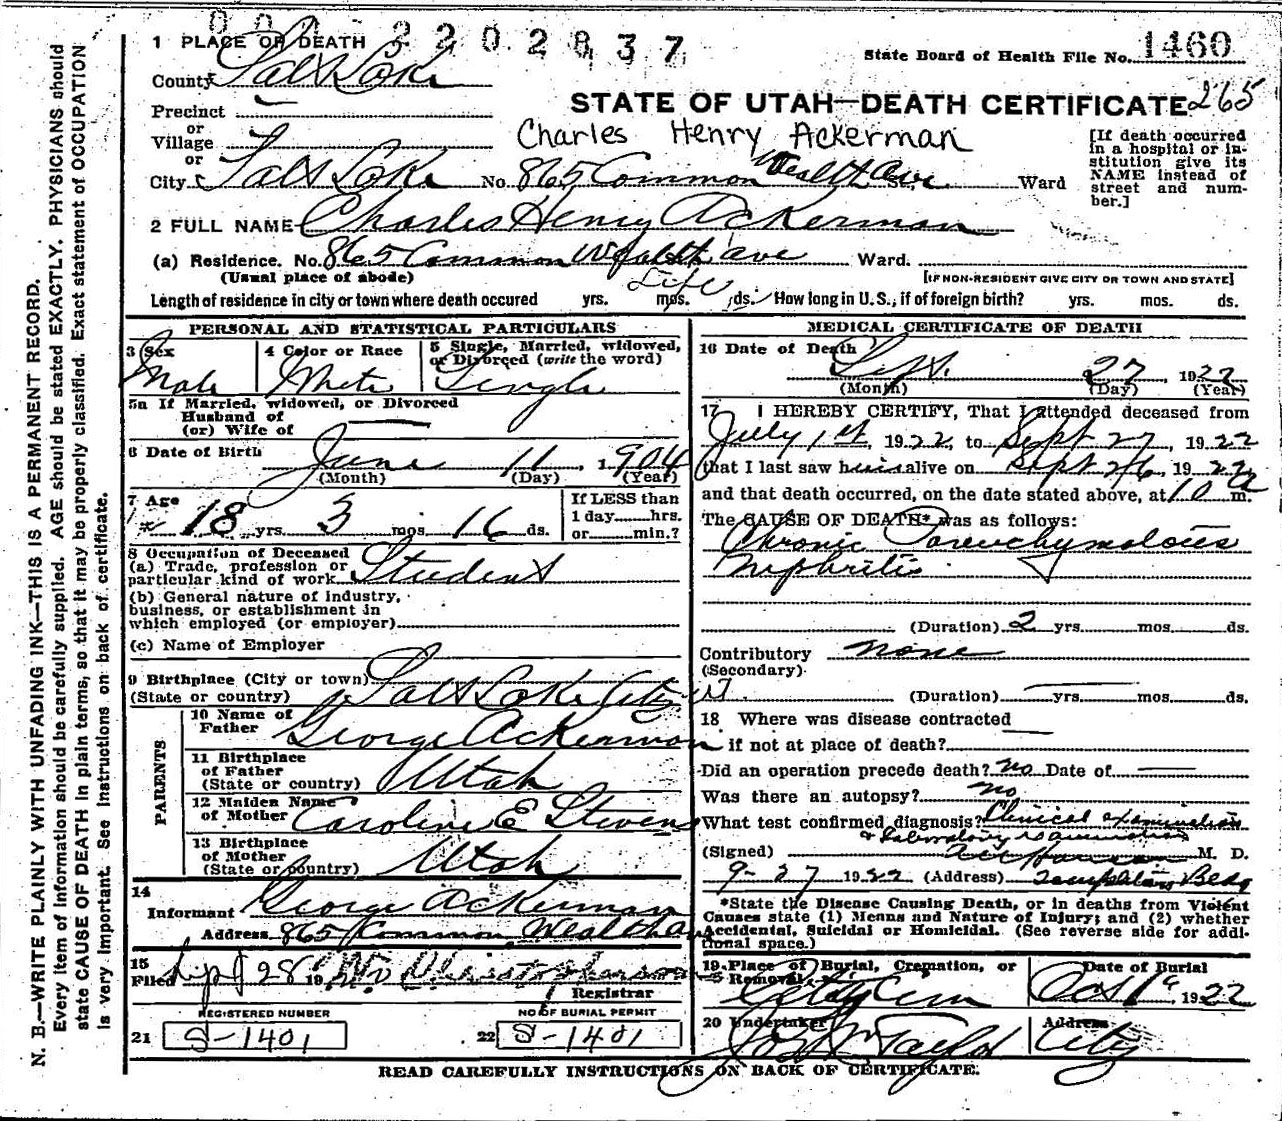 002202837
1 PLACE OF DEATH
State Board of Health File No. 1460
County Salt Lake
STATE OF UTAH—DEATH CERTIFICATE 265
Precinct
or
Village
Charles Henry Ackerman
or
City Salt Lake No. 865 Common Wealth Ave St. Ward
[If death occurred in a hospital or institution give its NAME instead of street and number.]
2 FULL NAME Charles Henry Ackerman
(a) Residence. No. 865 Common Wealth ave Ward.
(Usual place of abode) [IF NON-RESIDENT GIVE CITY OR TOWN AND STATE]
Life
Length of residence in city or town where death occured yrs. mos. ds. How long in U. S., if of foreign birth? yrs. mos. ds.
PERSONAL AND STATISTICAL PARTICULARS
3 Sex
Male
4 Color or Race
White
5 Single, Married, widowed,
or Divorced (write the word)
Single
5a If Married, widowed, or Divorced
Husband of
(or) Wife of
6 Date of Birth
June 11, 1904
(Month) (Day) (Year)
7 Age
18 yrs. 3 mos. 16 ds.
If LESS than
1 day......hrs.
or......min.?
8 Occupation of Deceased
(a) Trade, profession or
particular kind of work Student
(b) General nature of industry,
business, or establishment in
which employed (or employer)
(c) Name of Employer
9 Birthplace (City or town)
(State or country) Salt Lake City UT
PARENTS
10 Name of
Father George Ackerman
11 Birthplace
of Father
(State or country) Utah
12 Maiden Name
of Mother Caroline E Stevens
13 Birthplace
of Mother
(State or country) Utah
14
Informant George Ackerman
Address 865 Common Wealth Av
15
Filed Sept 28 19 Christopherson
Registrar
REGISTERED NUMBER
21 S-1401
NO. OF BURIAL PERMIT
22 S-1401
MEDICAL CERTIFICATE OF DEATH
16 Date of Death
Sept. 27, 1922
(Month) (Day) (Year)
17 I HEREBY CERTIFY, That I attended deceased from
July 1st, 1922, to Sept 27, 1922
that I last saw him alive on Sept 26, 1922
and that death occurred, on the date stated above, at 10 a m.
The CAUSE OF DEATH* was as follows:
Chronic Parenchymatous
Nephritis
(Duration) 2 yrs. mos. ds.
Contributory none
(Secondary)
(Duration) yrs. mos. ds.
18 Where was disease contracted
if not at place of death?
Did an operation precede death? no Date of
Was there an autopsy? no
What test confirmed diagnosis? Clinical examination
& Laboratory examination
(Signed) M. D.
9-27 1922 (Address) Templeton Bldg
*State the Disease Causing Death, or in deaths from Violent
Causes state (1) Means and Nature of Injury; and (2) whether
Accidental, Suicidal or Homicidal. (See reverse side for addi-
tional space.)
19 Place of Burial, Cremation, or
Removal
City Cem
Date of Burial
Oct 1st, 1922
20 Undertaker
Jos Wm Taylor
Address
City
READ CAREFULLY INSTRUCTIONS ON BACK OF CERTIFICATE.
N. B.—WRITE PLAINLY WITH UNFADING INK—THIS IS A PERMANENT RECORD.
Every item of information should be carefully supplied. AGE should be stated EXACTLY. PHYSICIANS should
state CAUSE OF DEATH in plain terms, so that it may be properly classified. Exact statement of OCCUPATION
is very important. See instructions on back of certificate.